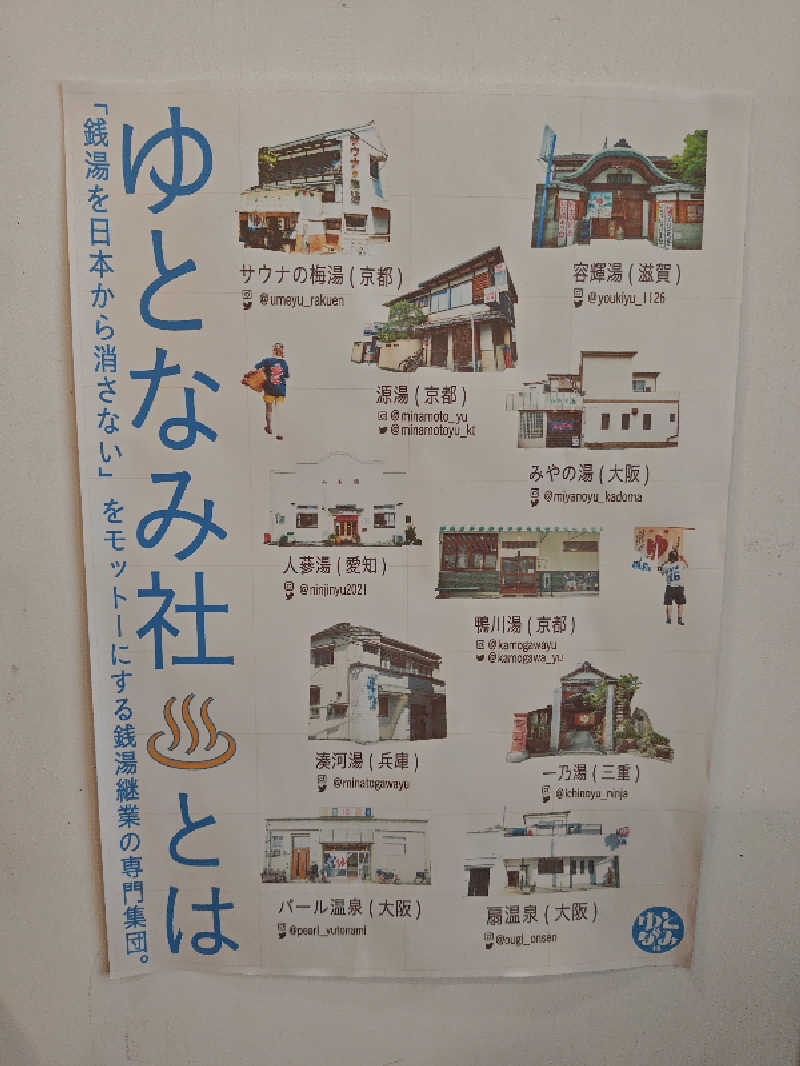 「銭湯を日本から消さない」をモットーにする銭湯継業の専門集団。
ゆとなみ社♨とは
サウナの梅湯
サウナの梅湯(京都)
@umeyu_rakuen
容輝湯(滋賀)
@youkiyu_1126
源湯(京都)
@minamoto_yu
@minamotoyu_kt
みやの湯(大阪)
@miyanoyu_kadoma
人蔘湯(愛知)
@ninjinyu2021
ゆ
鴨川湯(京都)
@kamogawayu
@kamogawa_yu
湊河湯(兵庫)
@minatogawayu
一乃湯(三重)
@ichinoyu_ninja
パール温泉(大阪)
@pearl_yutonami
扇温泉(大阪)
@ougi_onsen
ゆとなみ